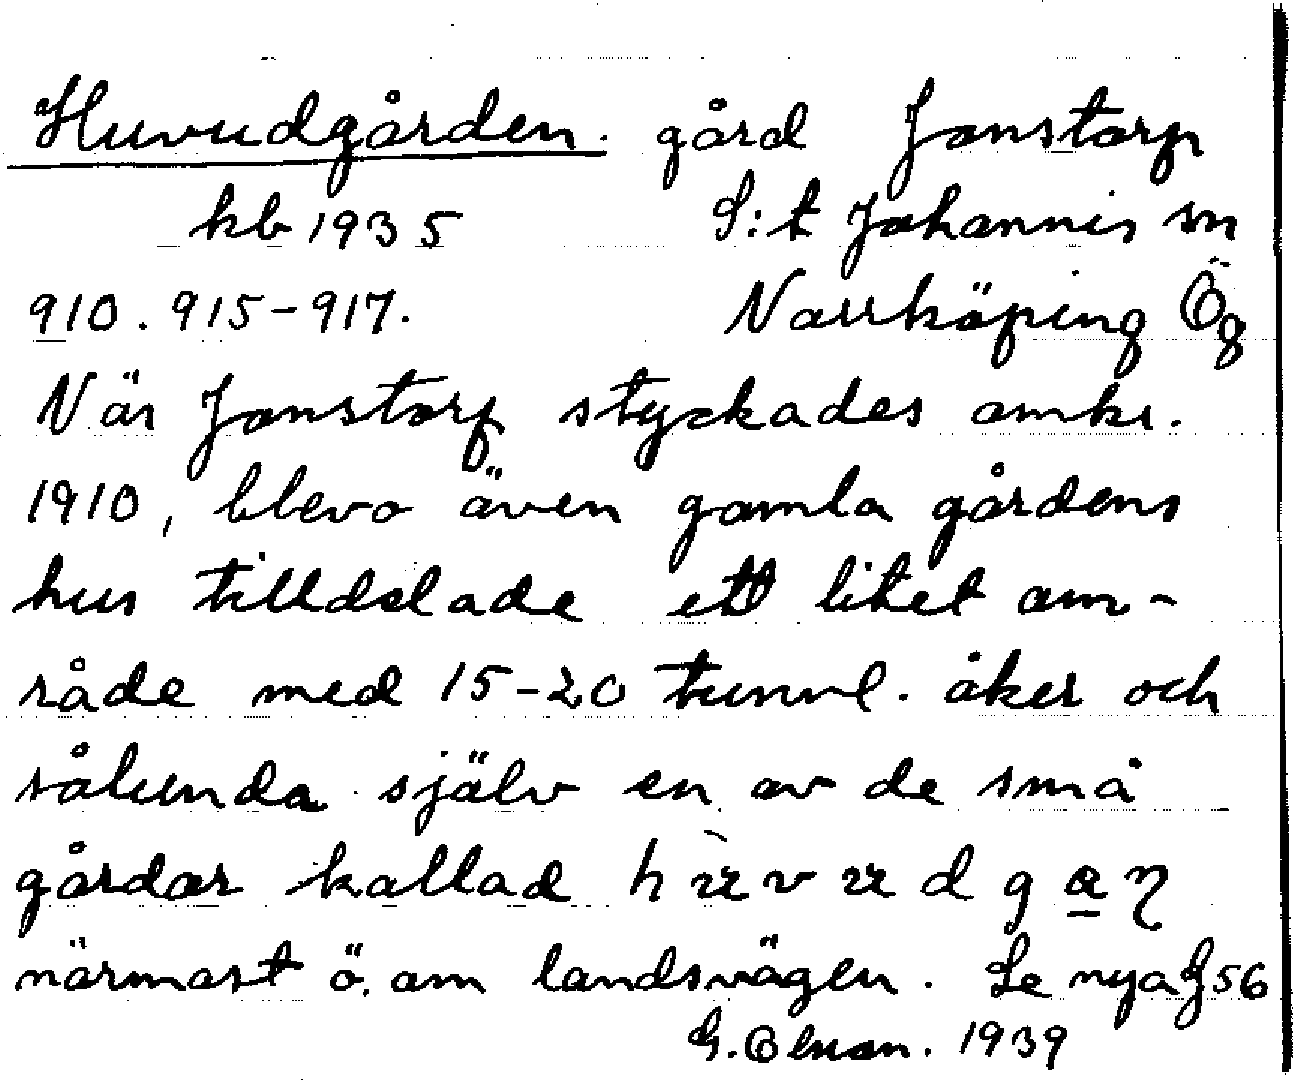 Huvudgården. gård Jonstorp
kb 1935 S:t Johannis sn
910. 915-917. Norrköping Ög
När Jonstorp styckades omkr.
1910, blevo även gamla gårdens
hus tilldelade ett litet om-
råde med 15-20 tunnl. åker och
sålunda själv en av de små
gårdar kallad
närmast ö. om landsvägen. Se nya G 56
G. Olsson. 1939